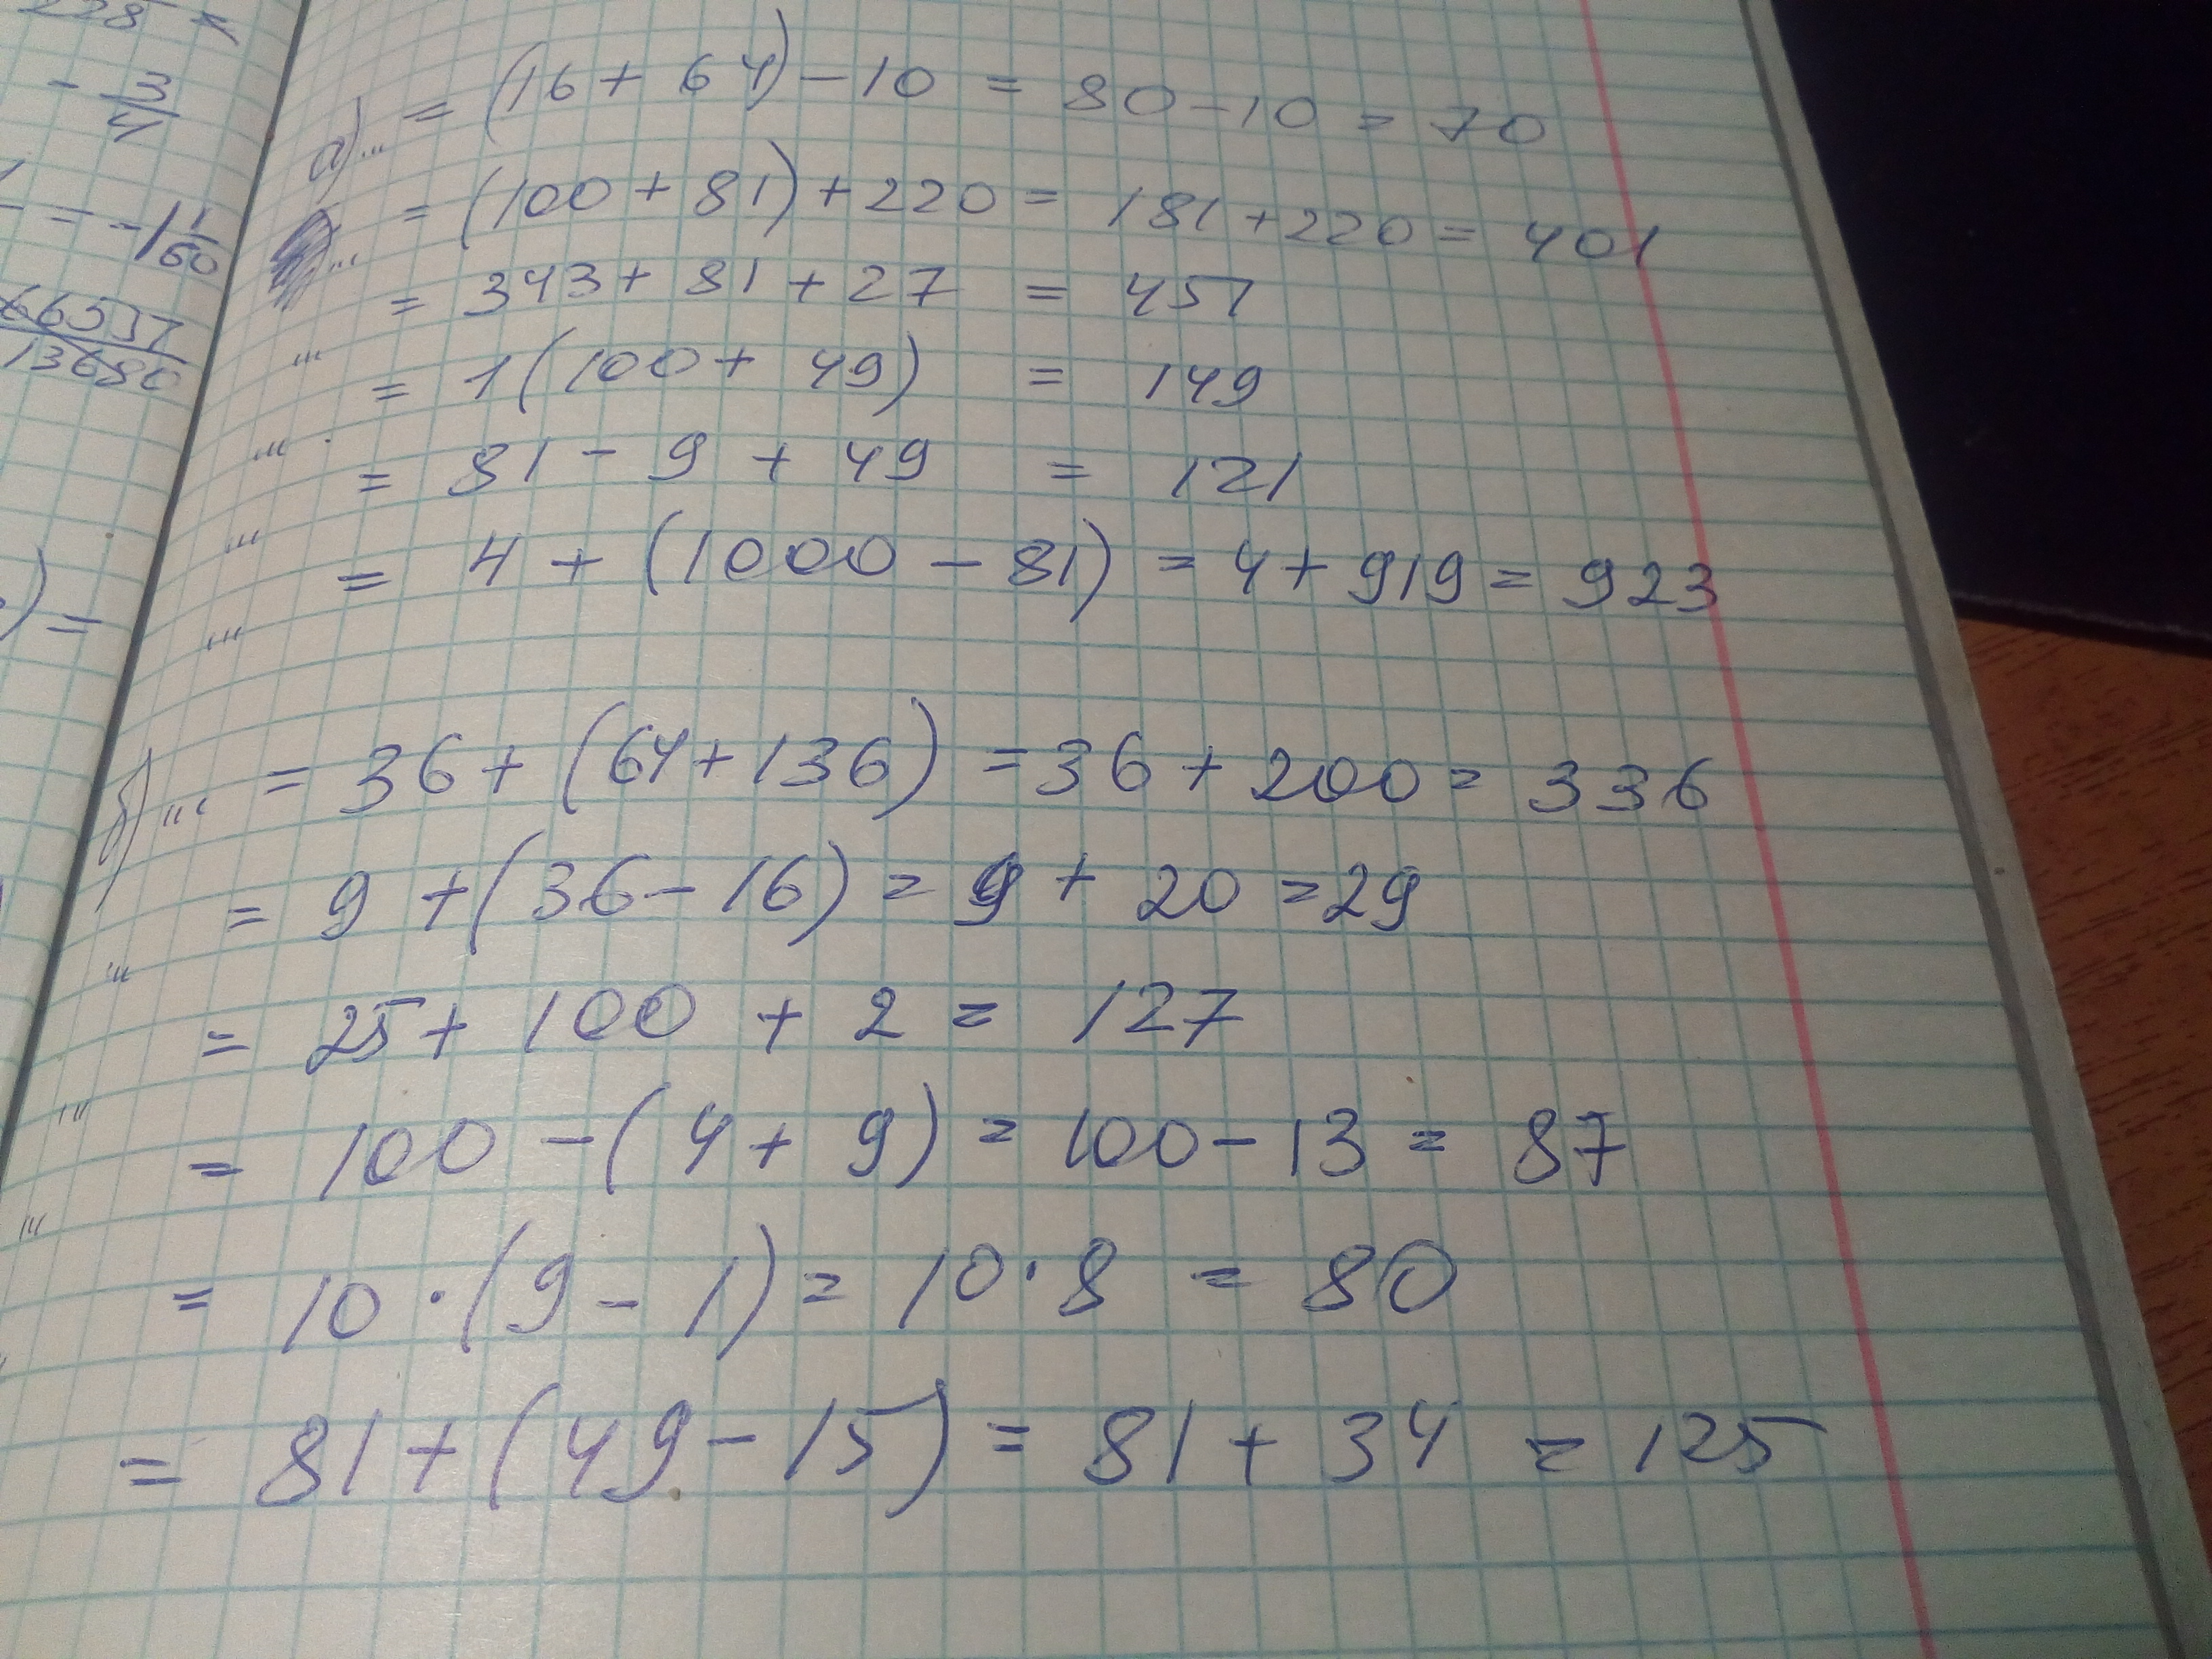 228
- 3/4
= -1 1/60
66537/13680
) =
а)... = (16 + 64) - 10 = 80 - 10 = 70
... = (100 + 81) + 220 = 181 + 220 = 401
... = 343 + 81 + 27 = 451
... = 1(100 + 49) = 149
... = 81 - 9 + 49 = 121
... = 4 + (1000 - 81) = 4 + 919 = 923
б)... = 36 + (64 + 136) = 36 + 200 = 336
... = 9 + (36 - 16) = 9 + 20 = 29
... = 25 + 100 + 2 = 127
... = 100 - (4 + 9) = 100 - 13 = 87
= 10 · (9 - 1) = 10 · 8 = 80
= 81 + (49 - 15) = 81 + 34 = 125